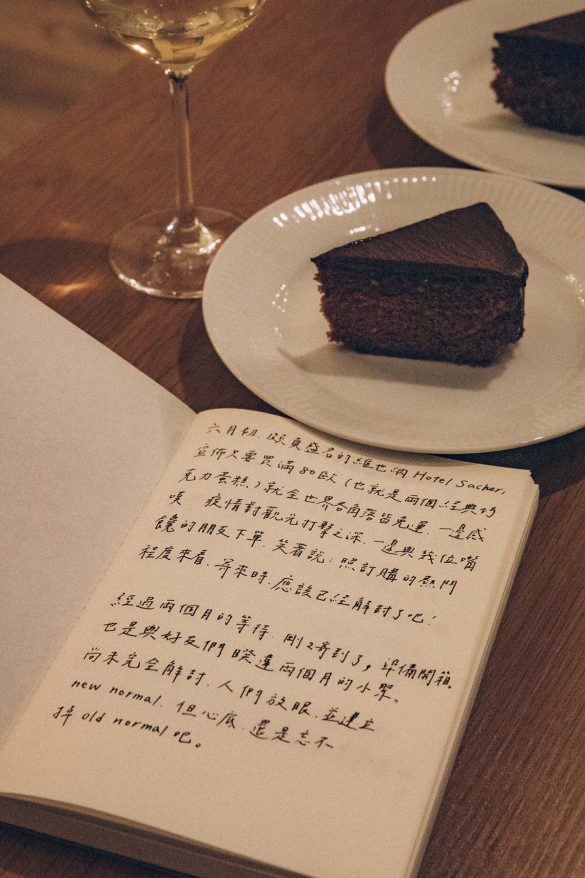 六月初，頗負盛名的維也納 Hotel Sacher，
宣佈只要買滿80歐（也就是兩個經典巧
克力蛋糕）就全世界各角落皆免運，一邊感
嘆 疫情對觀光打擊之深，一邊與幾位嘴
饞的朋友下單，笑著說：照訂購的熱門
程度來看，寄來時，應該已經解封了吧！
經過兩個月的等待，剛剛寄到了，準備開箱，
也是與好友們睽違兩個月的小聚。
尚未完全解封，人們放眼，並建立
new normal，但心底，還是忘不
掉 old normal 吧。